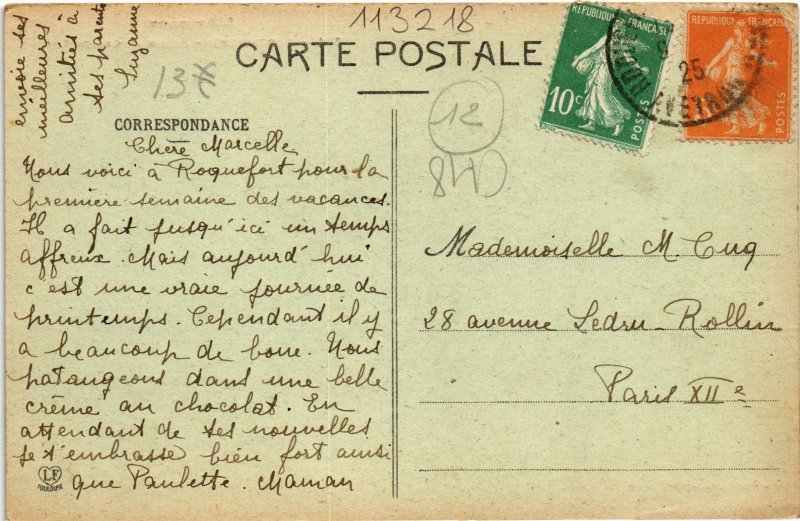 113218
CARTE POSTALE
13*
CORRESPONDANCE
Chère Marcelle
Nous voici à Roquefort pour la
première semaine des vacances.
Il a fait jusqu'ici un temps
affreux. Mais aujourd'hui
c'est une vraie journée de
printemps. Cependant il y
a beaucoup de boue. Nous
pataugeons dans une belle
crème au chocolat. En
attendant de tes nouvelles
je t'embrasse bien fort ainsi
que Paulette. Maman
envoie ses
meilleures
amitiés à
tes parents
Suzanne
LF
TOULOUSE
12
RÉPUBLIQUE FRANÇAISE
10c
POSTES
RÉPUBLIQUE FRANÇAISE
POSTES
25
AVEYRON
Mademoiselle M. Cuq
28 avenue Ledru-Rollin
Paris XIIe